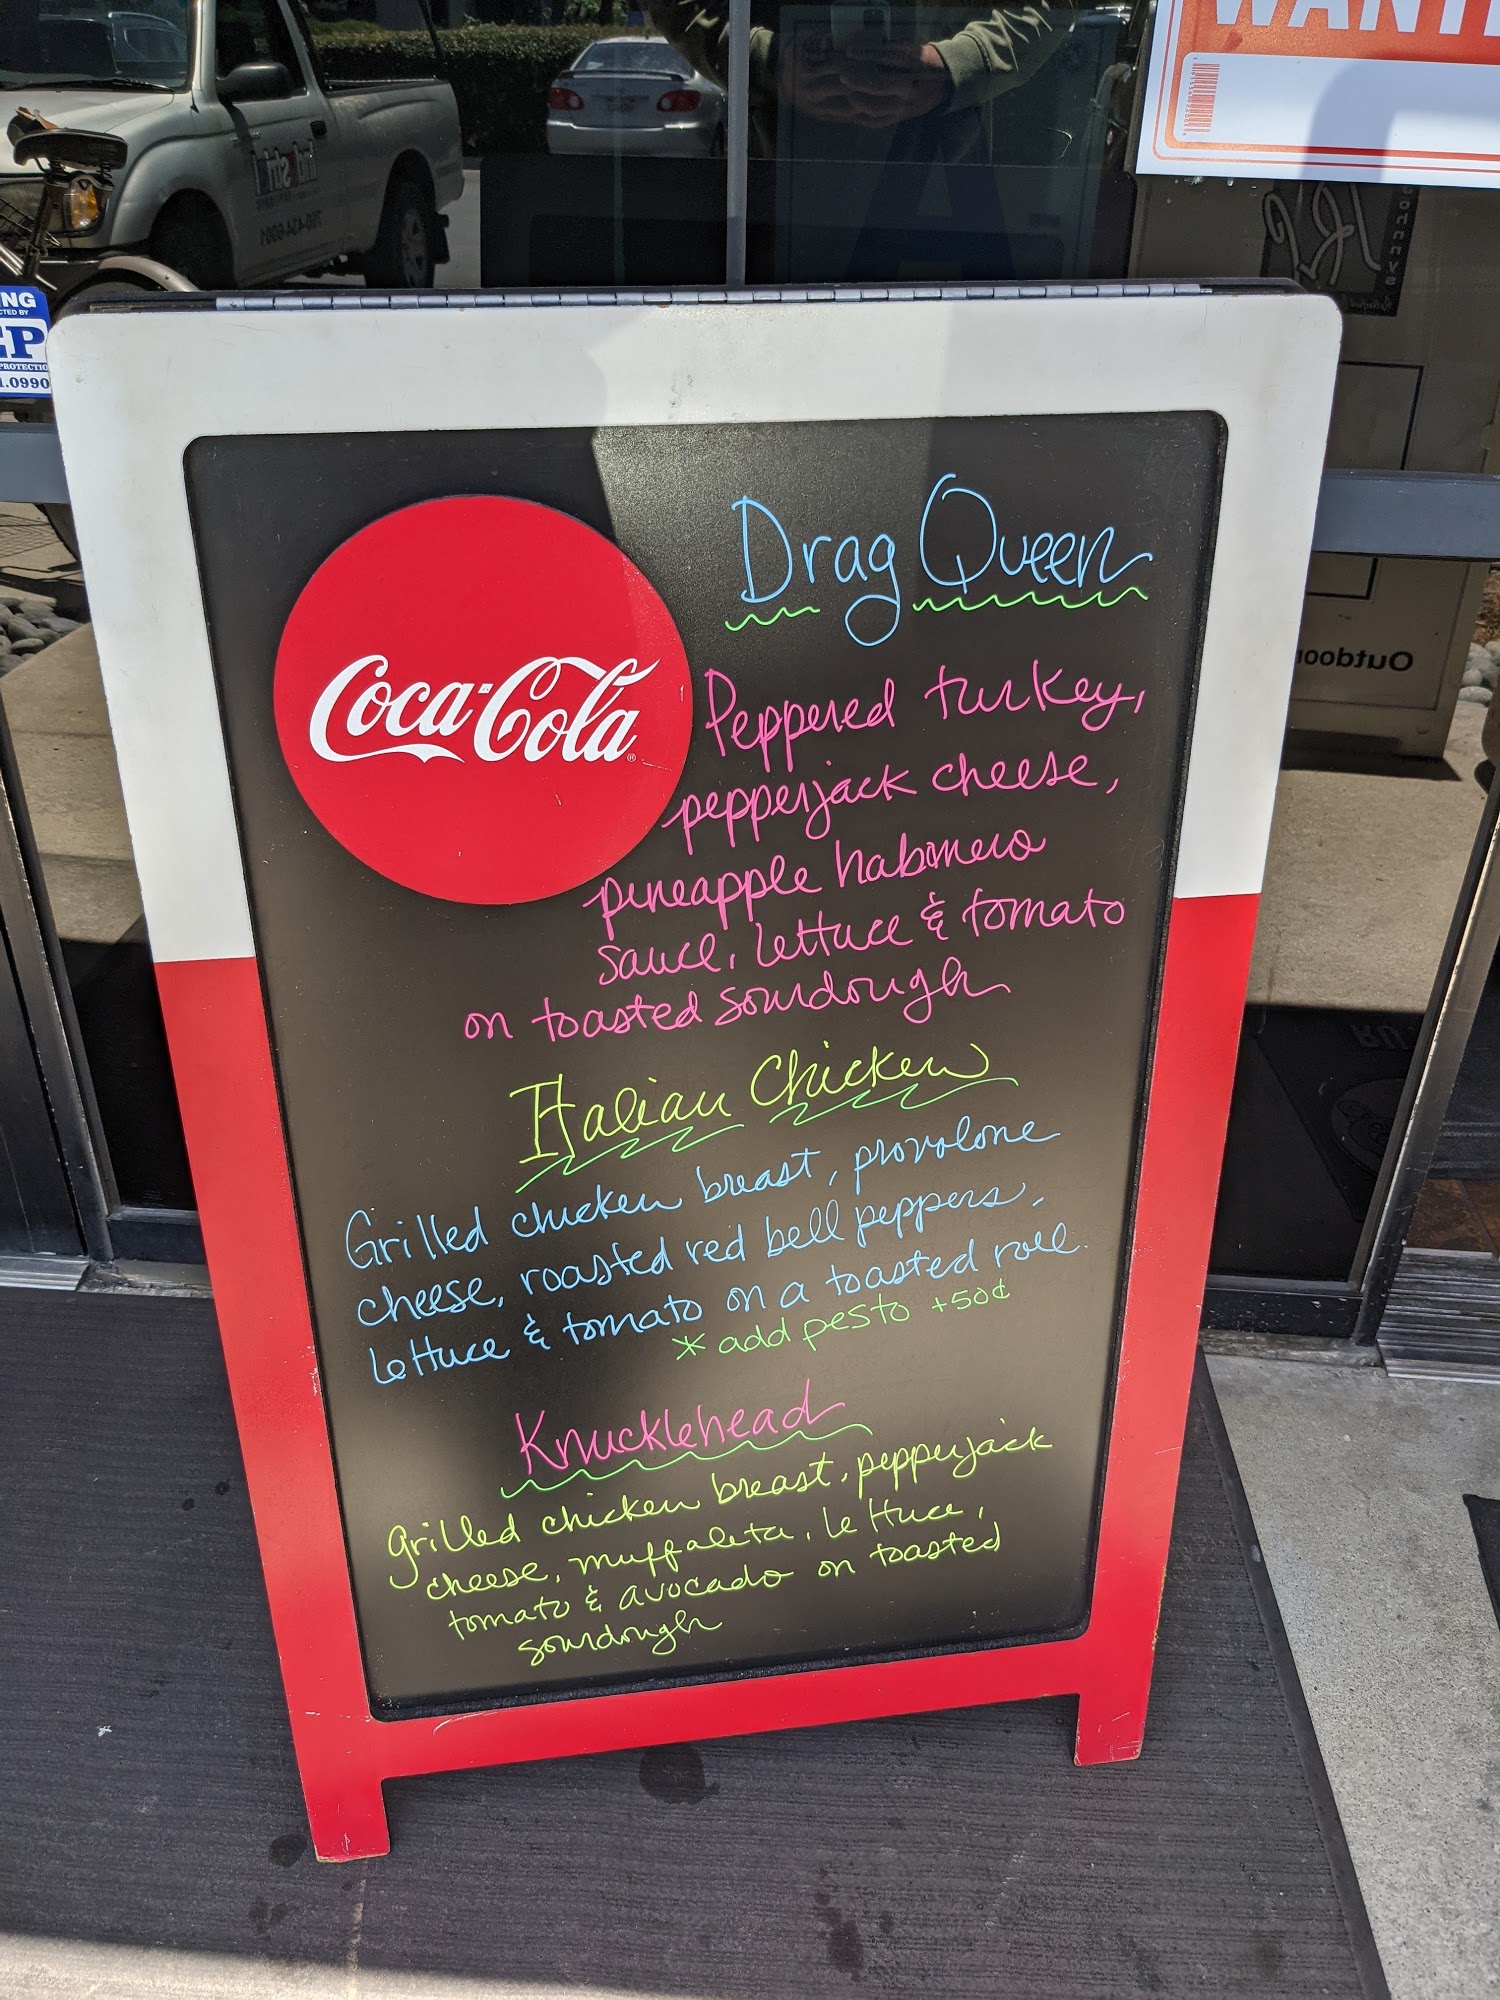 WANT
NG
CTED BY
PROTECTIO
1.0990
Coca-Cola
Drag Queen
Peppered turkey,
pepperjack cheese,
pineapple habanero
sauce, lettuce & tomato
on toasted sourdough
Italian Chicken
Grilled chicken breast, provolone
cheese, roasted red bell peppers,
lettuce & tomato on a toasted roll.
* add pesto +50¢
Knucklehead
grilled chicken breast, pepperjack
cheese, muffaleta, lettuce,
tomato & avocado on toasted
sourdough
Outdoor